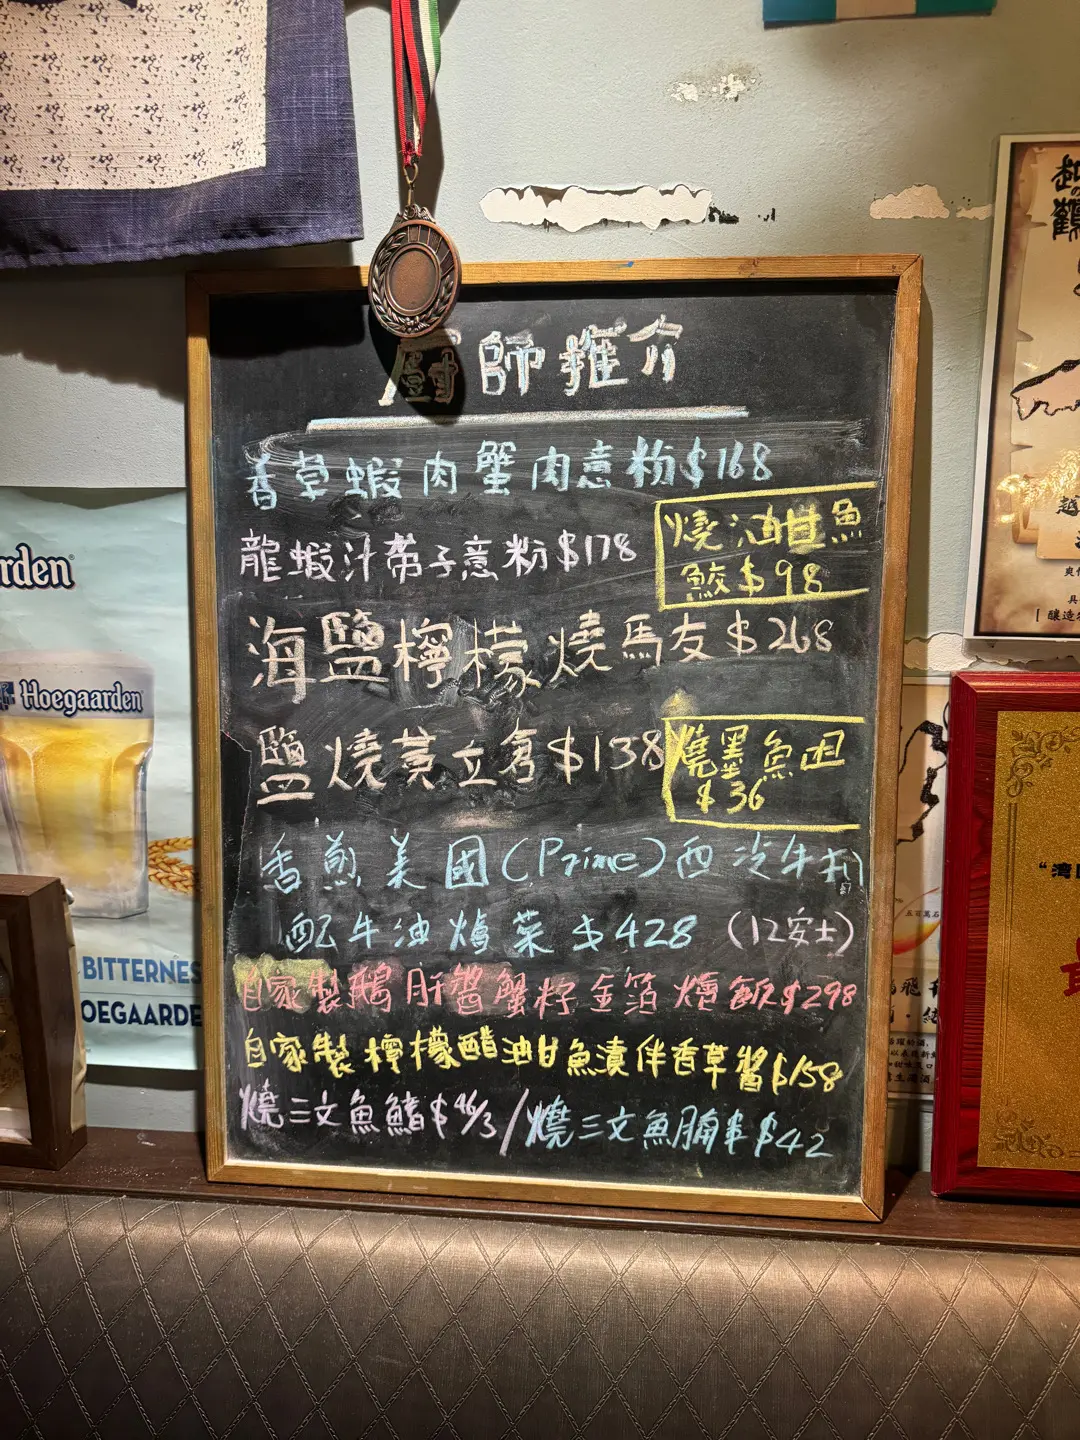 廚師推介
香草蝦肉蟹肉意粉$168
龍蝦汁帶子意粉$178
燒油甘魚
鮫$98
海鹽檸檬燒馬友$268
鹽燒黃立倉$138
燒墨魚咀
$36
香煎美國(Prime)西冷牛扒
配牛油焗菜$428 (12安士)
自家製鵝肝醬蟹籽金箔燴飯$298
自家製檸檬醋油甘魚漬伴香草醬$158
燒三文魚鰭$46/3/燒三文魚腩串$42
rden
Hoegaarden
BITTERNES
OEGAARDE
越
五百萬石